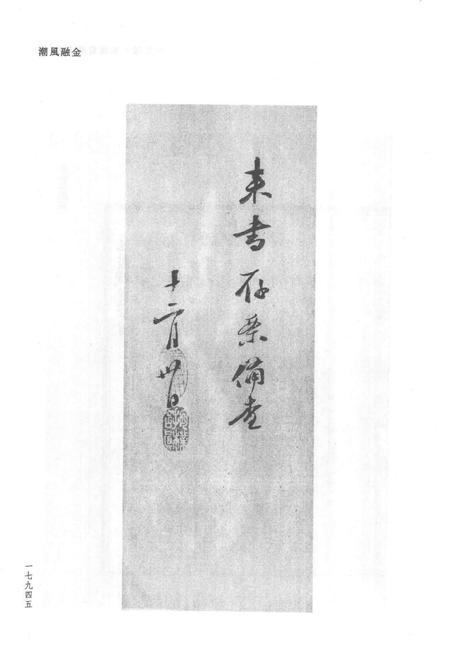 金融風潮
來書存案備查
十二月卅日
一七九四五